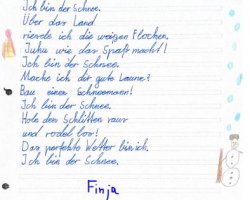 Ich bin der Schnee.
Über das Land
riesele ich die weißen Flocken.
Juhu wie das Spaß macht!
Ich bin der Schnee.
Mache ich dir gute Laune?
Bau einen Schneemann!
Ich bin der Schnee.
Hole den Schlitten raus
und rodel los!
Das perfekte Wetter bin ich.
Ich bin der Schnee.
Finja